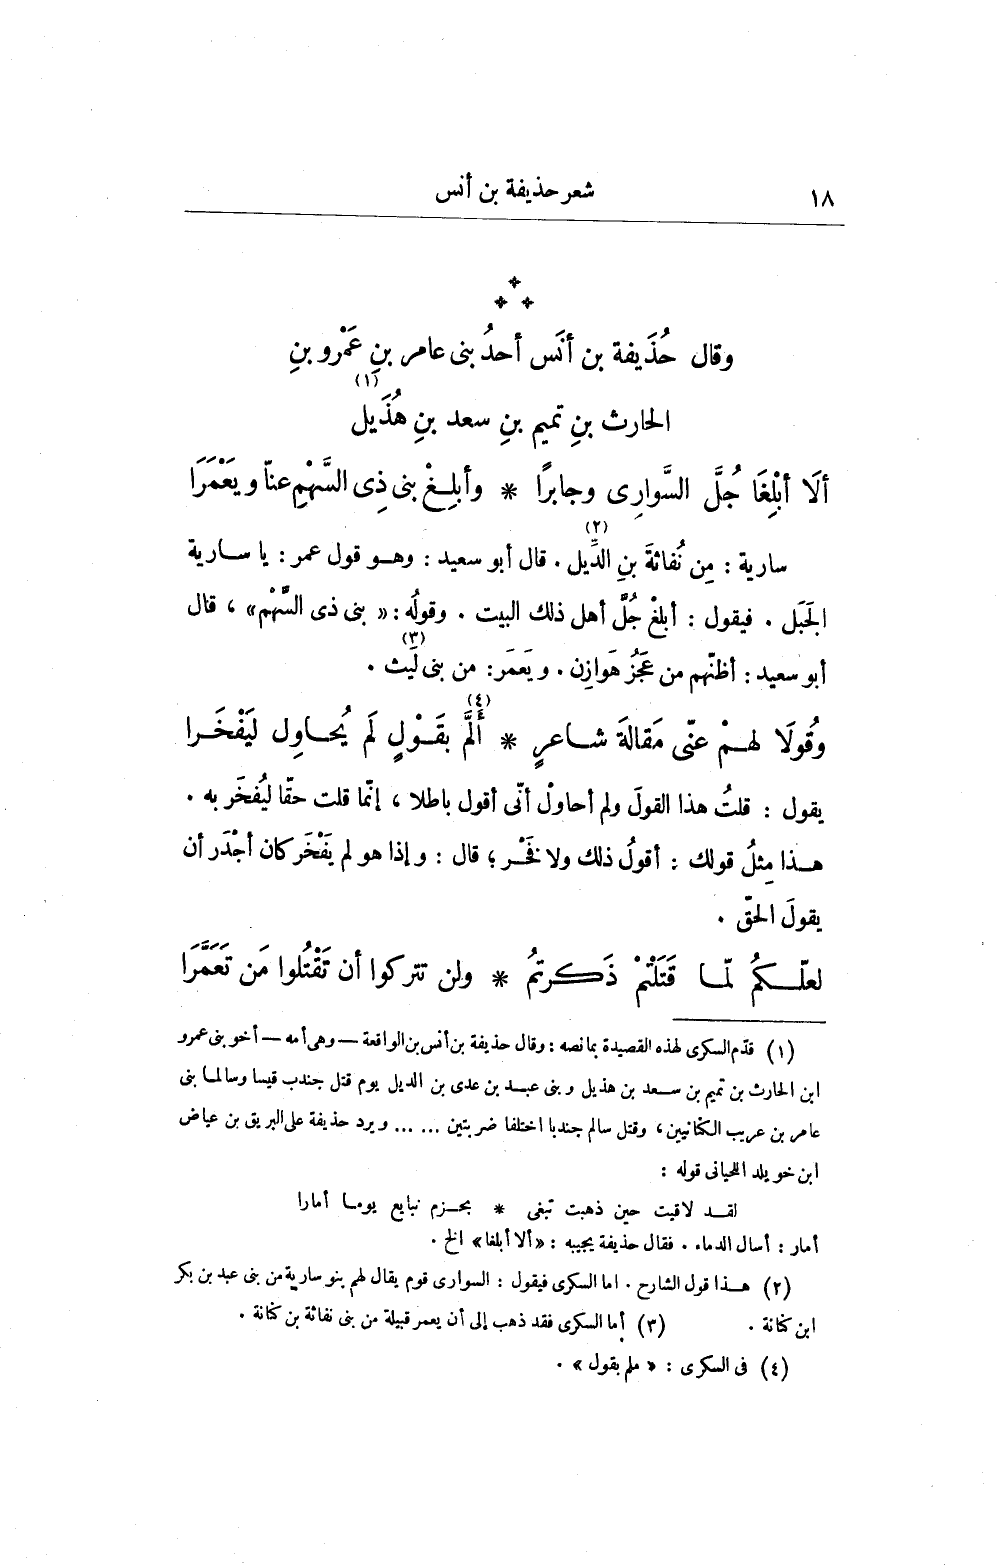 ١٨
شعر حذيفة بن أنس
وقال حُذَيفة بن أنَس أحدُ بنى عامر بنِ عَمْرو بنِ
الحارث بنِ تميم بنِ سعد بنِ هُذَيل (١)
ألَا أبْلِغَا جُلَّ السَّوارِى وجابرًا * وأبلِغْ بنى ذِى السَّهْمِ عنّا ويَعْمَرَا
سارية : مِن نُفاثةَ بنِ الدِّيل (٢) . قال أبو سعيد : وهو قول عمر : يا سارية
الجَبَل . فيقول : أبلغْ جُلَّ أهل ذلك البيت . وقولُه : « بنى ذى السَّهْم » ، قال
أبو سعيد : أظنّهم من عَجُز هَوازِن . ويَعمَر : من بنى لَيث (٣) .
وقُولَا لهمْ عنّى مَقالةَ شاعرٍ * ألَمَّ (٤) بقَوْلٍ لَم يُحاوِل ليَفْخَرا
يقول : قلتُ هذا القولَ ولم أحاوِلْ أنّى أقول باطلا ، إنّما قلت حقّا ليُفخَر به .
هذا مِثلُ قولك : أقولُ ذلك ولا فَخْر ؛ قال : وإذا هو لم يَفْخَر كان أجْدَر أن
يقولَ الحقّ .
لعلّكمُ لمّا قَتَلْتمْ ذَكرتمُ * ولن تتركوا أن تَقْتُلوا مَن تَعَمَّرَا
(١) قدّم السكرى لهذه القصيدة بما نصه : وقال حذيفة بن أنس بن الواقعة — وهى أمه — أخو بنى عمرو
ابن الحارث بن تميم بن سعد بن هذيل وبنى عبد بن عدى بن الديل يوم قتل جندب قيسا وسالما بنى
عامر بن عريب الكنانيين ، وقتل سالم جندبا اختلفا ضربتين ... ... ويرد حذيفة على البريق بن عياض
ابن خويلد اللحيانى قوله :
لقد لاقيت حين ذهبت تبغى * بحزم نبايع يوما أمارا
أمار : أسال الدماء . فقال حذيفة يجيبه : « ألا أبلغا » الخ .
(٢) هذا قول الشارح . اما السكرى فيقول : السوارى قوم يقال لهم بنو سارية من بنى عبد بن بكر
ابن كنانة . (٣) أما السكرى فقد ذهب إلى أن يعمر قبيلة من بنى نفاثة بن كنانة .
(٤) فى السكرى : « ملم بقول » .